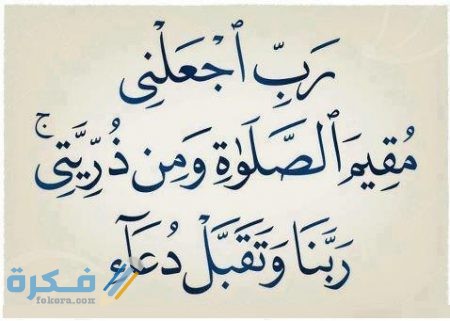 رَبِّ ٱجْعَلْنِى
مُقِيمَ ٱلصَّلَوٰةِ وَمِن ذُرِّيَّتِى ۚ
رَبَّنَا وَتَقَبَّلْ دُعَآءِ
فكرة
fekera.com